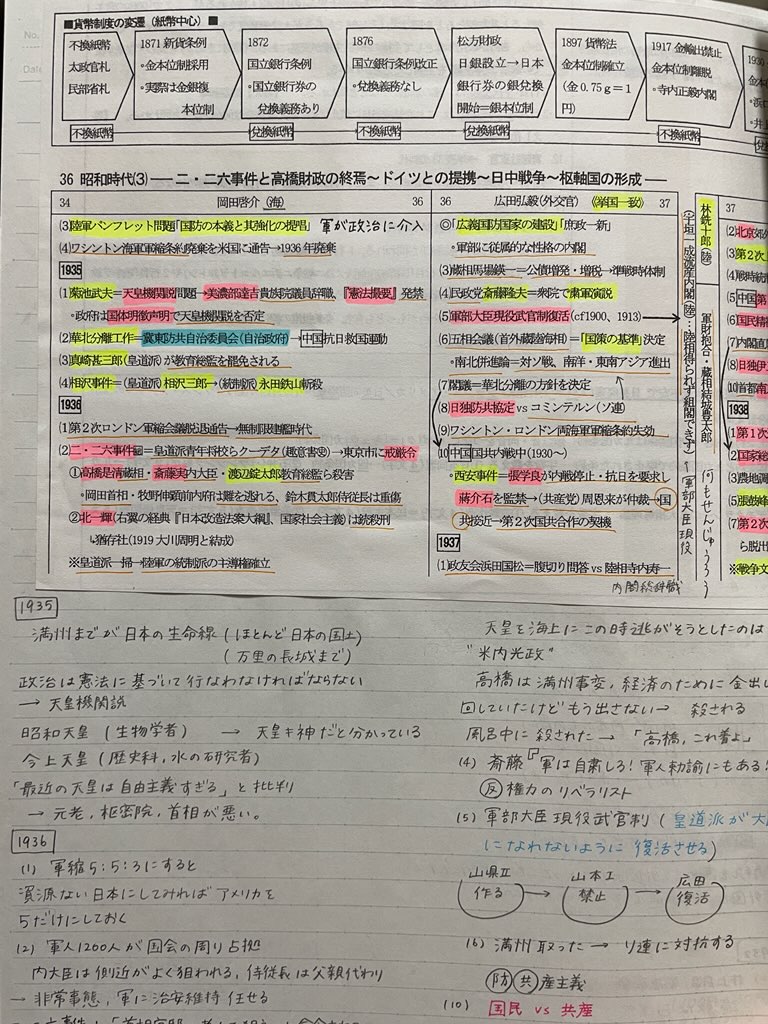 ■貨幣制度の変遷（紙幣中心）■
不換紙幣
太政官札
民部省札
不換紙幣
1871 新貨条例
・金本位制採用
・実際は金銀複
本位制
1872
国立銀行条例
・国立銀行券の
兌換義務あり
兌換紙幣
1876
国立銀行条例改正
・兌換義務なし
不換紙幣
松方財政
日銀設立→日本
銀行券の銀兌換
開始＝銀本位制
兌換紙幣
1897 貨幣法
金本位制確立
（金 0.75ｇ＝1
円）
1917 金輸出禁止
金本位制離脱
・寺内正毅内閣
不換紙幣
36 昭和時代(3) ── 二・二六事件と高橋財政の終焉～ドイツとの提携～日中戦争～枢軸国の形成 ──
34 岡田啓介（海） 36
(3)陸軍パンフレット問題「国防の本義と其強化の提唱」 軍が政治に介入
(4)ワシントン海軍軍縮条約廃棄を米国に通告→1936 年廃棄
1935
(1)菊池武夫＝天皇機関説問題→美濃部達吉貴族院議員辞職、『憲法撮要』発禁
・政府は国体明徴声明で天皇機関説を否定
(2)華北分離工作＝冀東防共自治委員会(自治政府)→中国抗日救国運動
(3)真崎甚三郎（皇道派）が教育総監を罷免される
(4)相沢事件＝（皇道派）相沢三郎→（統制派）永田鉄山斬殺
1936
(1)第２次ロンドン軍縮会議脱退通告→無制限建艦時代
(2)二・二六事件＝皇道派青年将校らクーデタ（趣意書⑧）→東京市に戒厳令
①高橋是清蔵相・斎藤実内大臣・渡辺錠太郎教育総監ら殺害
・岡田首相・牧野伸顕前内府は難を逃れる、鈴木貫太郎侍従長は重傷
②北一輝（右翼の経典『日本改造法案大綱』、国家社会主義）は銃殺刑
↳猶存社(1919 大川周明と結成)
※皇道派一掃→陸軍の統制派の主導権確立
36 広田弘毅（外交官） （挙国一致） 37
◎「広義国防国家の建設」「庶政一新」
・軍部に従属的な性格の内閣
(3)蔵相馬場鍈一＝公債増発・増税→準戦時体制
(4)民政党斎藤隆夫＝衆院で粛軍演説
(5)軍部大臣現役武官制復活（cf1900、1913）
(6)五相会議（首外蔵陸海相）＝「国策の基準」決定
・南北併進論＝対ソ戦、南洋・東南アジア進出
(7)閣議＝華北分離の方針を決定
(8)日独防共協定 vs コミンテルン（ソ連）
(9)ワシントン・ロンドン両海軍軍縮条約失効
⑽中国国共内戦中（1930～）
・西安事件＝張学良が内戦停止・抗日を要求し
蔣介石を監禁→（共産党）周恩来が仲裁→国
共接近→第２次国共合作の契機
1937
(1)政友会浜田国松＝腹切り問答 vs 陸相寺内寿一
内閣総辞職
林銑十郎（陸）
（宇垣一成流産内閣（陸）…陸相得られず組閣できず）
↑軍部大臣現役
軍財抱合・蔵相結城豊太郎
何もせんじゅうろう
37
1938
1935
満州までが日本の生命線（ほとんど日本の国土）
（万里の長城まで）
政治は憲法に基づいて行なわなければならない
→ 天皇機関説
昭和天皇（生物学者） → 天皇≠神だと分かっている
今上天皇（歴史科，水の研究者）
「最近の天皇は自由主義すぎる」と批判
→ 元老，枢密院，首相が悪い。
1936
(1) 軍縮 5：5：3にすると
資源ない日本にしてみればアメリカを
5だけにしておく
(2) 軍人1200人が国会の周り占拠
内大臣は側近がよく狙われる，侍従長は父親代わり
→ 非常事態，軍に治安維持任せる
天皇を海上にこの時逃がそうとしたのは
"米内光政"
高橋は満州事変，経済のために金出し
回していたけどもう出さない→ 殺される
風呂中に殺された→「高橋，これ着よ」
(4) 斎藤「軍は自粛しろ！軍人勅諭にもある！
反権力のリベラリスト
(5) 軍部大臣現役武官制（皇道派が大
になれないように復活させる）
山県Ⅱ 作る → 山本Ⅰ 禁止 → 広田 復活
(6) 満州取った → ソ連に対抗する
防共産主義
(10) 国民 vs 共産